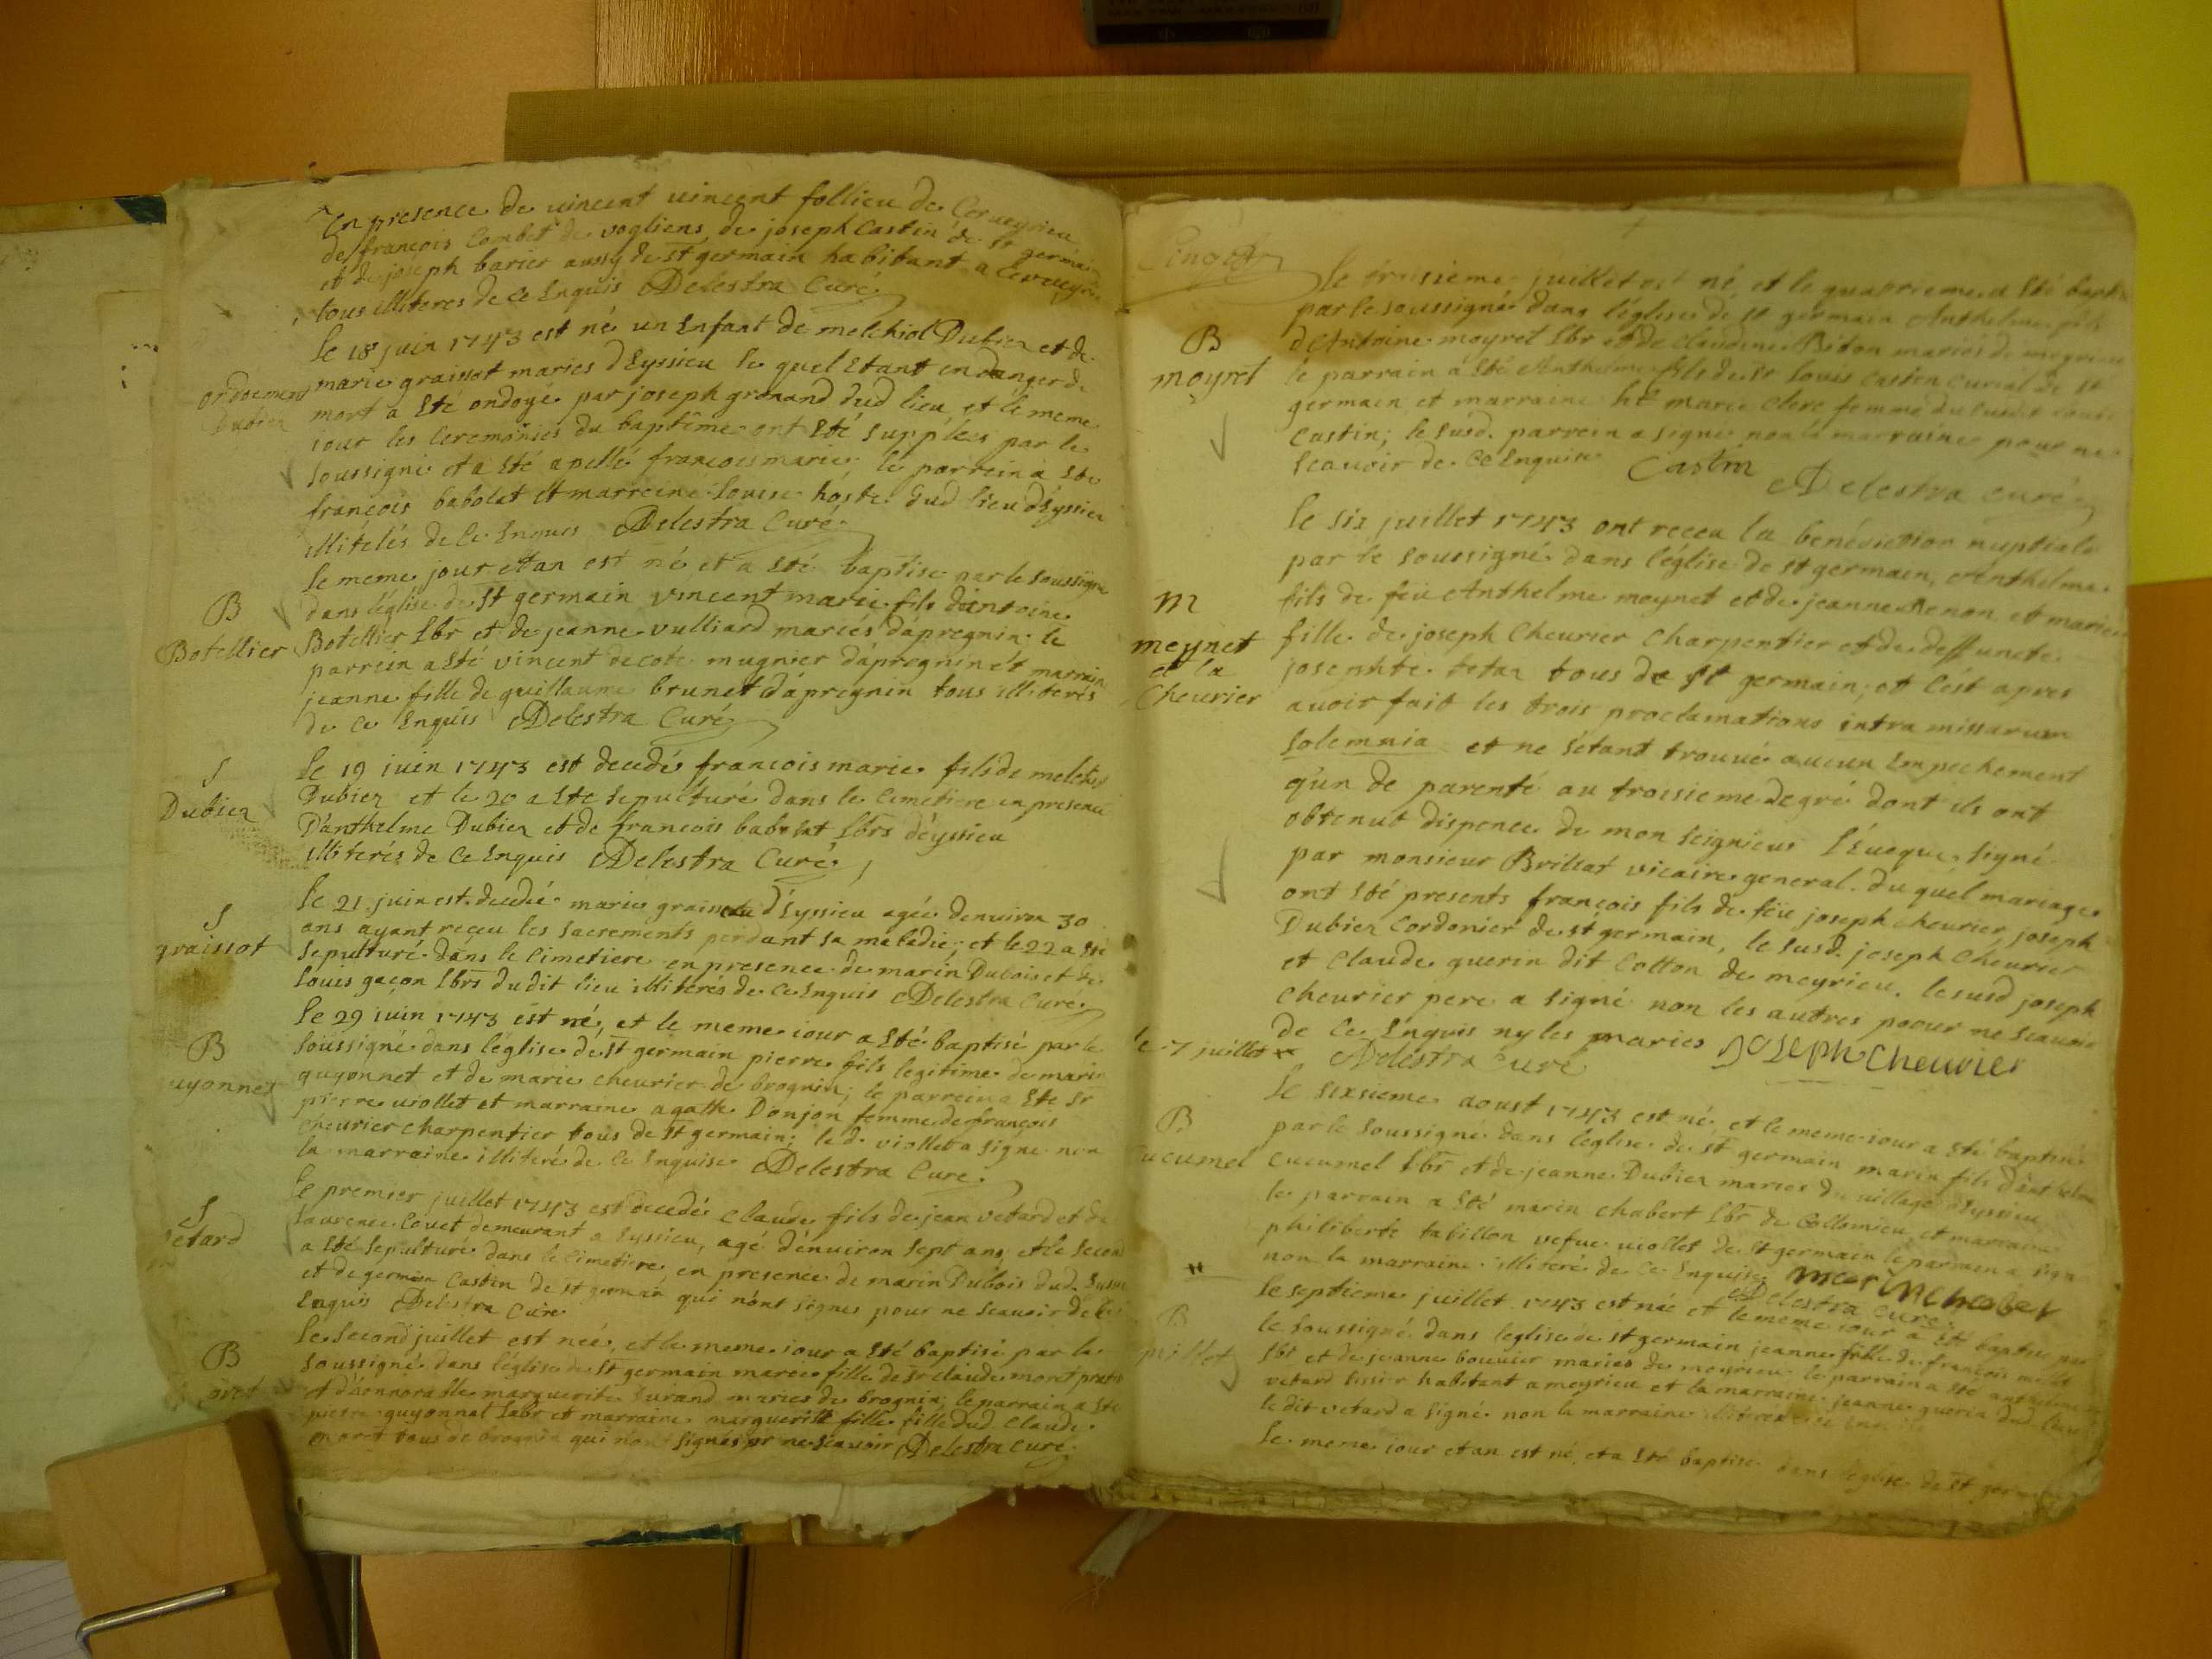 En presence de vincent vincent follieu de Cerveyrieu
de françois Combet de vogliens, de joseph Castin de St germain
et de joseph barier aussy de St germain habitant a Cerveyrie
tous illiteres de ce Enquis Delestra Curé
Le 18 juin 1743 est né un Enfant de melchiol Dubier et de
marie graissot mariés d'Eyssieu le quel Etant en danger de
mort a Eté ondoyé par joseph gronand dud lieu et le meme
iour les Ceremonies du baptême ont Eté supplées par le
soussigné et a Eté apellé francois marie, le parrein a Eté
françois babolat et marreine louise hoste dud lieu d'Eyssieu
illiterés de Ce Enquis Delestra Curé
ondoiement
Dubier
Le meme jour et an est né et a Eté baptise par le soussigné
dans l'église de St germain vincent marie fils d'antoine
Botellier Lbr et de jeanne vulliard mariés d'apregnin; le
parrein a Eté vincent decote mugnier d'apregnin et marrein
jeanne fille de guillaume brunet d'apregnin tous illiterés
de Ce Enquis Delestra Curé
B
Botellier
Le 19 juin 1743 est decedé francois marie fils de melchiol
Dubier et le 20 a Eté sepulturé dans le Cimetiere en presence
D'anthelme Dubier et de francois babolat Lbrs d'éyssieu
illiterés de Ce Enquis Delestra Curé
S
Dubier
Le 21 juin est decedée marie d'Eyssieu agée d'environ 30
ans ayant reçeu les sacrements pendant sa meledie; et le 22 a Eté
sepulturé dans le Cimetiere en presence de marin Dubois et de
Louis gaçon Lbrs du dit lieu illiterés de Ce Enquis Delestra Curé
S
graissot
Le 29 iuin 1743 est né, et le meme iour a Eté baptisé par le
soussigné dans l'église de St germain pierre fils legitime de marin
guyonnet et de marie cheurier de brognin; le parrein a Eté Sr
pierre viollet et marraine agathe Donjon femme de françois
cheurier charpentier tous de St germain; le d. viollet a signé non
la marraine illiteré de Ce Enquise Delestra Curé
B
uyonnet
Le premier juillet 1743 est decedé Claude fils de jean vetard et de
Laurence Couet demeurant a Eyssieu, agé d'environ sept ans et le second
a Eté sepulturé dans le Cimetiere en presence de marin Dubois dud.
et de germain Castin de St germain qui n'ont signés pour ne scauoir de Ce
Enquis Delestra Curé
S
etard
Le second juillet est neé, et le meme iour a Eté baptisé par le
soussigné dans l'église de St germain marie fille de Sr claude
et d'honnorable marguerite Durand mariés de brognin, le parrain a Eté
pierre guyonnat Labr et marraine marguerite fille fille dud Claude
tous de brognin qui n'ont signés pr ne scauoir Delestra curé
B
Le troisieme juillet est né et le quatrieme a Eté bapti
par le soussigné dans l'église de St germain Anthelme fils
d'Antoine moyret Lbr et de Claudine Biton mariés de meyrieu
le parrain a Eté Anthelme fils de Sr Louis Castin curial de St
germain et marraine marie Clerc femme du
Castin; le susd. parrein a signé non la marraine pour ne
scauoir de Ce Enquise Castin Delestra curé
B
moyret
Le six juillet 1743 ont reçeu la benédiction nuptiale
par le soussigné dans l'église de St germain, Anthelme
fils de feü Anthelme meynet et de jeanne Renon et marie
fille de joseph Cheurier Charpentier et de deffuncte
josephte tetaz tous de St germain; et c'est apres
auoir fait les trois proclamations intra missarum
solemnia et ne s'étant trouué aucun Empechement
q'un de parenté au troisieme degré dont ils ont
obtenut dispence de mon seignieur l'Eueque, signé
par monsieur Brillat vicaire general. Du quel mariage
ont Eté presents françois fils de feü joseph cheurier, joseph
Dubier Cordonier de St germain, le susd. joseph Cheurier
et Claude guerin dit Cotton de meyrieu. le susd joseph
Cheurier pere a signé non les autres pour ne scauoir
de Ce Enquis ny les mariés JOSEPH Cheurier
Delestra Curé
m
meynet
et la
Cheurier
le 7 juillet
Le sixsieme aoust 1743 est né, et le meme iour a Eté baptisé
par le soussigné dans l'église de St germain marin fils d'anthelme
cucumel Lbr et de jeanne Dubier mariés du village d'Eyssieu
le parrain a Eté marin chabert Lbr de Collomieu et marraine
philiberte tabillon vefue viollet de St germain le parrain a signé
non la marraine illiteré de Ce Enquise
Delestra curé
B
ucumel
Le septieme juillet 1743 est née et le meme iour a Eté baptise par
le soussigné dans l'église de St germain jeanne fille de francois
Lbr et de jeanne bouuier mariés de meyrieu le parrain a Eté
vetard habitant a meyrieu et la marraine jeanne guerin dud lieu
le dit vetard a signé non la marraine
B
Le meme iour et an est né, et a Eté baptise dans l'église de St germain